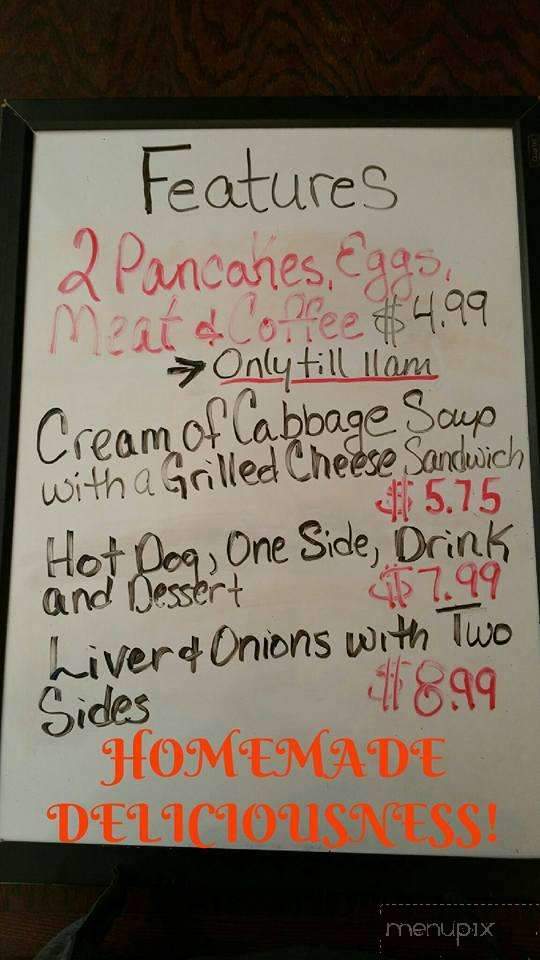 Features
2 Pancakes, Eggs,
Meat & Coffee $4.99
→ Only till 11am
Cream of Cabbage Soup
with a Grilled Cheese Sandwich
$5.75
Hot Dog, One Side, Drink
and Dessert $7.99
Liver & Onions with Two
Sides $8.99
HOMEMADE
DELICIOUSNESS!
menupix